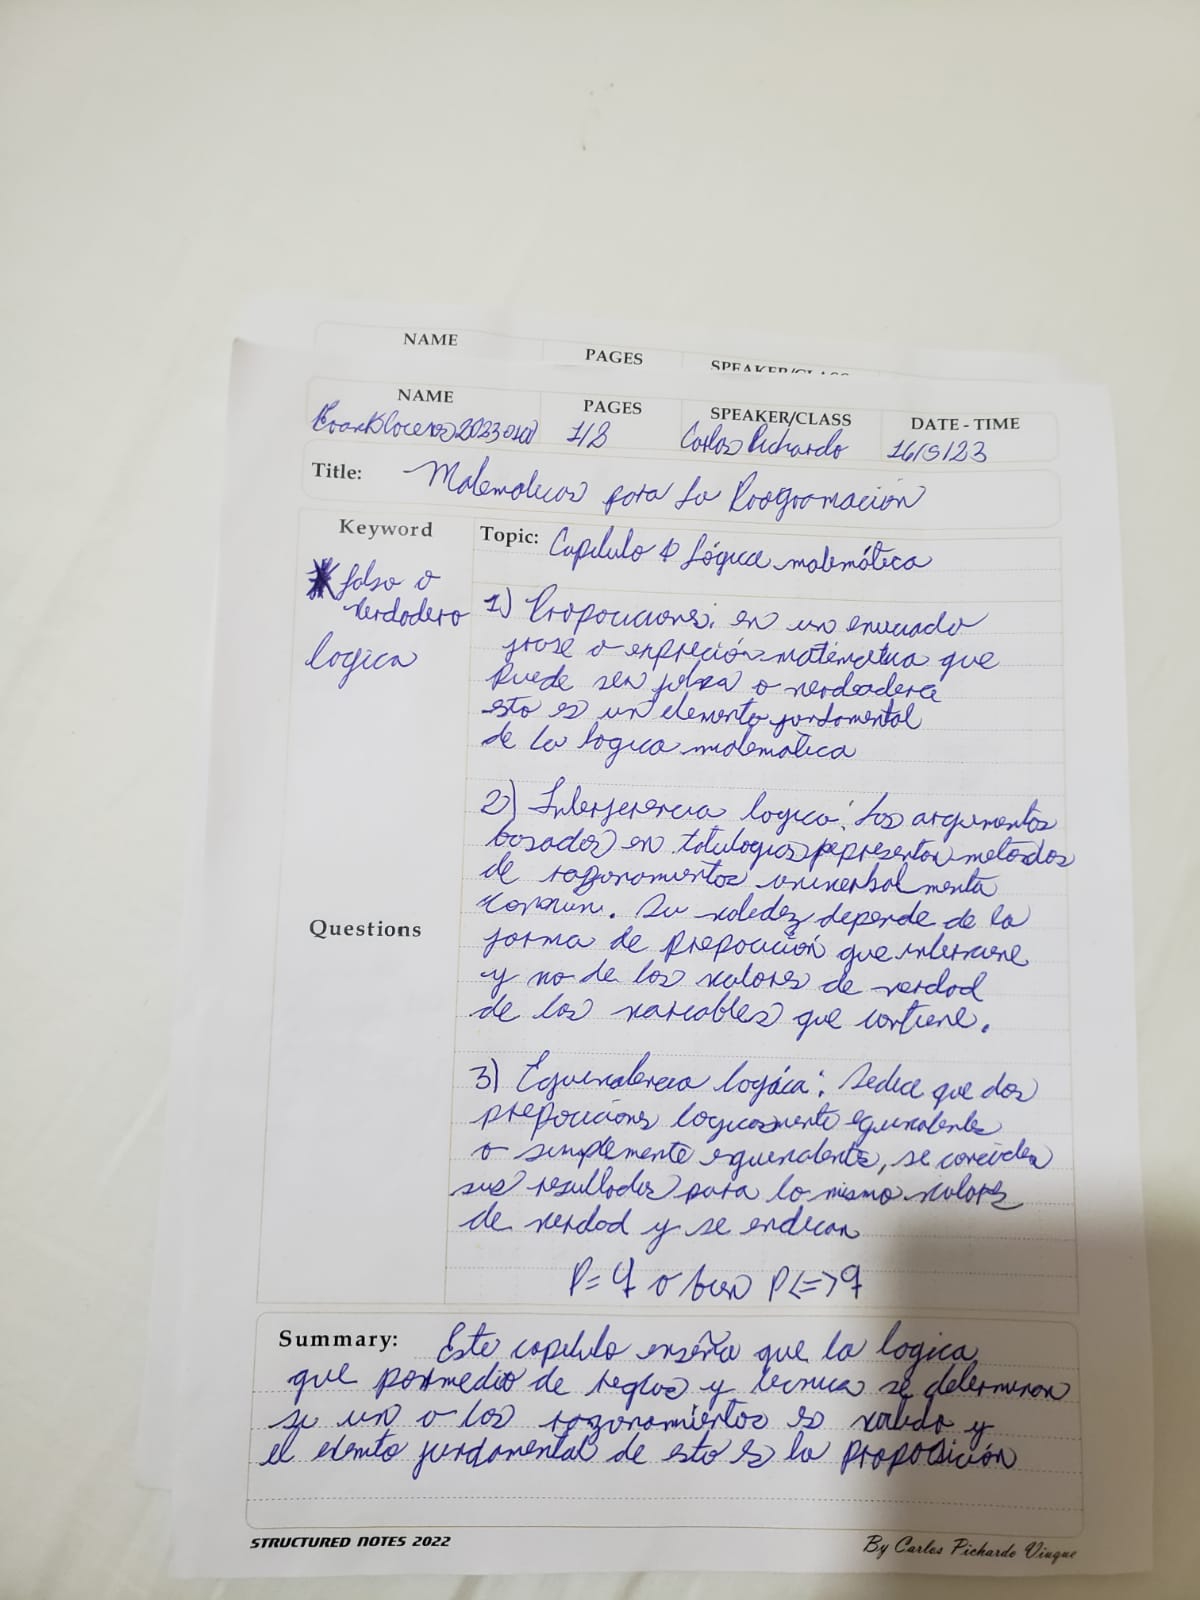 NAME
PAGES
SPEAKER/CLASS
NAME
PAGES
SPEAKER/CLASS
DATE - TIME
20230100
1/2
Carlos Pichardo
16/5/23
Title: Matematicas para la Programación
Keyword
falso o
verdadero
logica
Questions
Topic: Capitulo 1 Lógica matemática
1) Proposiciones: en un enunciado
frase o expreción matemática que
puede ser falsa o verdadera
esto es un elemento fundamental
de la logica matemática
2) Interferencia logica: Los argumentos
basados en totulogias representan metodos
de razonamientos
común. Su validez depende de la
forma de prepocición que interviene
y no de los valores de verdad
de las variables que contiene.
3) Equivalencia logica: Se dice que dos
prepocicions logicamente equivalentes
o simplemente equivalente, se coinciden
sus resultados para lo mismo valores
de verdad y se endican
P=q o bien P<=>q
Summary: Este capitulo enseña que la logica
que por medio de reglas y tecnica se determinan
si un o los razonamientos es valido y
el fundamental de esto es la proposición
STRUCTURED NOTES 2022
By Carlos Pichardo Viuque